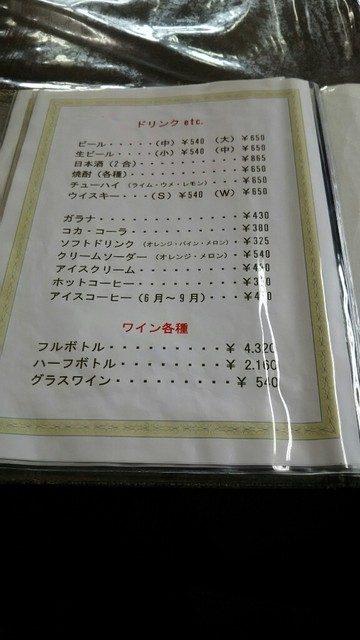 ドリンク etc.
ビール・・・・・(中) ¥540 (大) ¥650
生ビール・・・・(小) ¥540 (中) ¥650
日本酒 (2合)・・・・・・・・・・・¥865
焼酎 (各種)・・・・・・・・・・・・¥650
チューハイ (ライム・ウメ・レモン)・・・・・・¥650
ウイスキー・・・(S) ¥540 (W) ¥650
ガラナ・・・・・・・・・・・・・・¥430
コカ・コーラ・・・・・・・・・・・¥380
ソフトドリンク (オレンジ・パイン・メロン)・・・¥325
クリームソーダー (オレンジ・メロン)・・・・¥540
アイスクリーム・・・・・・・・・・
ホットコーヒー・・・・・・・・・・
アイスコーヒー (6月〜9月)・・・
ワイン各種
フルボトル・・・・・・・・・¥ 4,320
ハーフボトル・・・・・・・・¥ 2,160
グラスワイン・・・・・・・・・¥ 540